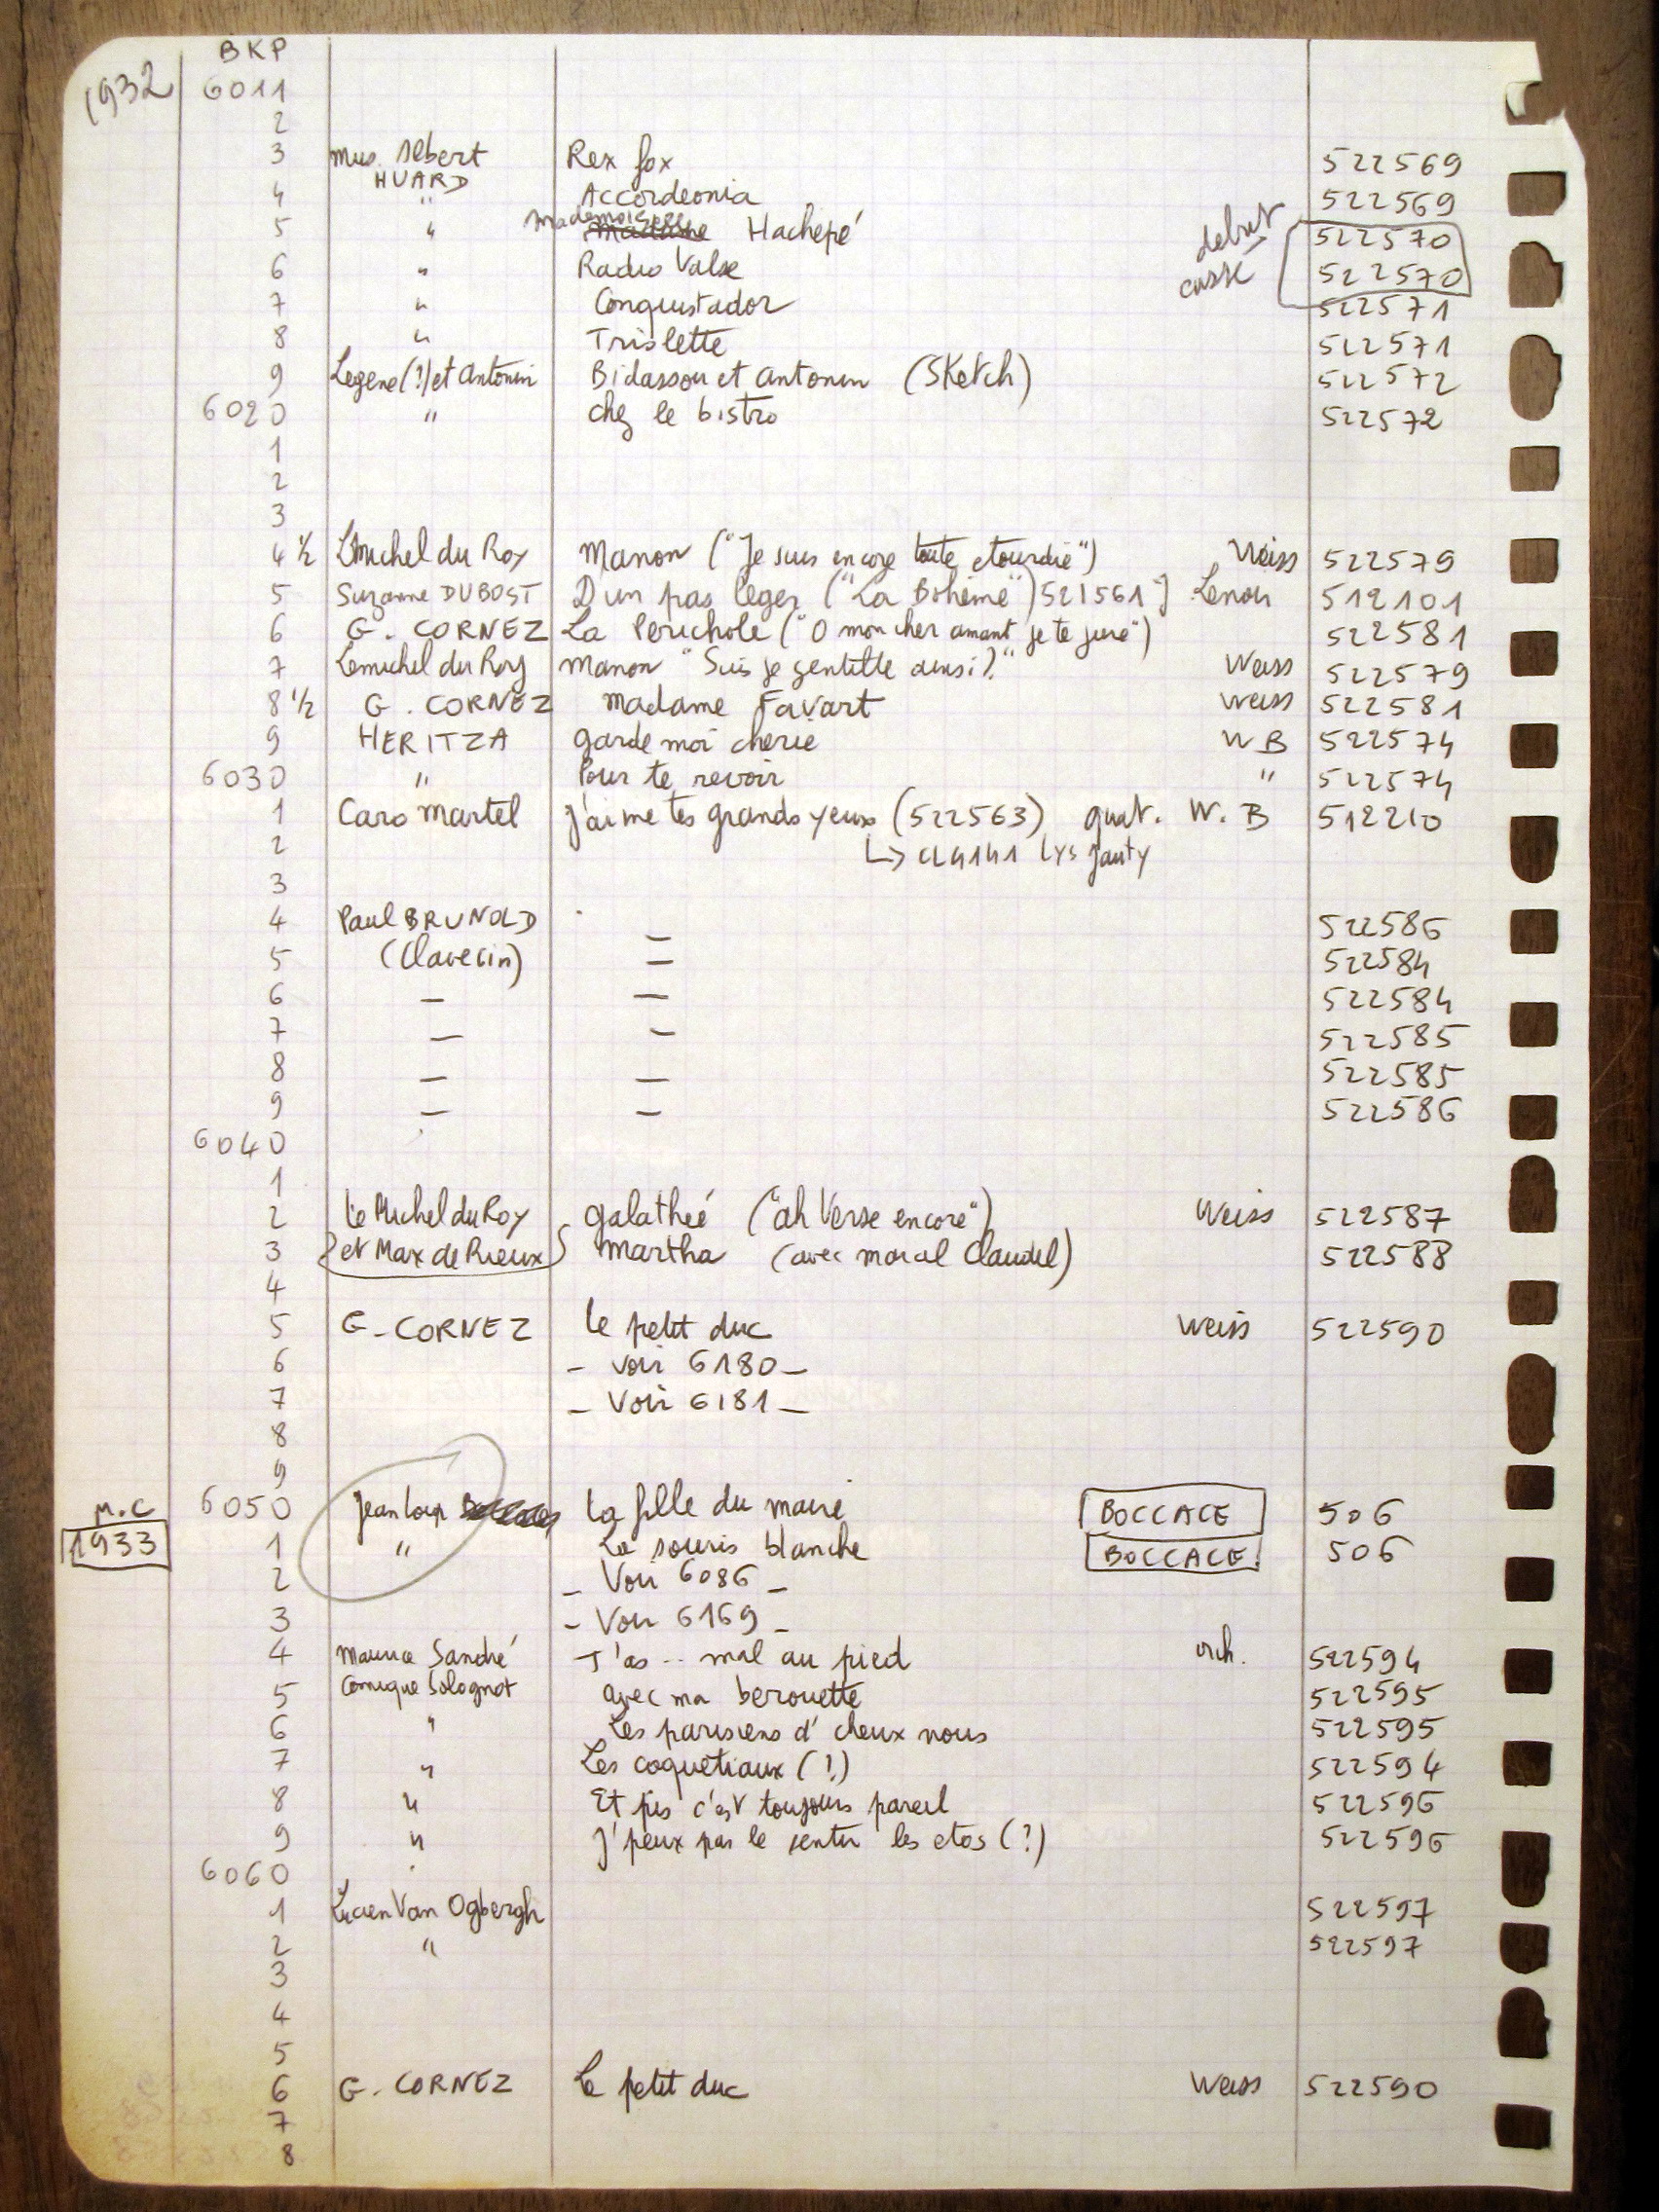 BKP
1932 6011
2
3 Mus. Albert Rex fox 522569
HUARD
4 " Accordeonia 522569
Mademoiselle
5 " Madame Hachepé debut 522570
6 " Radio Valse casse 522570
7 " Conquistador 522571
8 " Trislette 522571
9 Legene(?) et Antonin Bidassou et Antonin (Sketch) 522572
6020 " chez le bistro 522572
1
2
3
4 ½ LMichel du Roy Manon ("Je suis encore toute etourdie") Weiss 522579
5 Suzanne DUBOST D'un pas leger ("La Bohème") 521561] Lenoir 512101
6 G. CORNEZ La Perichole ("O mon cher amant je te jure") 522581
7 Lemichel du Roy Manon "Suis je gentille ainsi?" Weiss 522579
8 ½ G. CORNEZ Madame Favart Weiss 522581
9 HERITZA Garde moi cherie WB 522574
6030 " Pour te revoir " 522574
1 Caro Martel J'aime tes grands yeux (522563) guit. W.B 512210
2 ↳ CL4141 Lys Gauty
3
4 Paul BRUNOLD — 522586
5 (Clavecin) — 522584
6 — — 522584
7 — — 522585
8 — — 522585
9 — — 522586
6040
1
2 Le Michel du Roy Galathée ("ah Verse encore") Weiss 522587
3 et Max de Rieux Martha (avec Marcel Claudel) 522588
4
5 G-CORNEZ Le petit duc Weiss 522590
6 - voir 6180 -
7 - Voir 6181 -
8
9
M.C 6050 Jean Loup La fille du maire BOCCACE 506
1933 1 " La souris blanche BOCCACE. 506
2 - Voir 6086 -
3 - Voir 6169 -
4 Maurice Sandré T'as .. mal au pied orch. 522594
5 Comique Solognot avec ma berouette 522595
6 " Les parisiens d' cheux nous 522595
7 " Les coquetiaux (?) 522594
8 " Et pis c'est toujours pareil 522596
9 " J'peux pas le sentir les etos (?) 522596
6060
1 Lucien Van Ogbergh 522597
2 " 522597
3
4
5
6 G. CORNEZ Le petit duc Weiss 522590
7
8